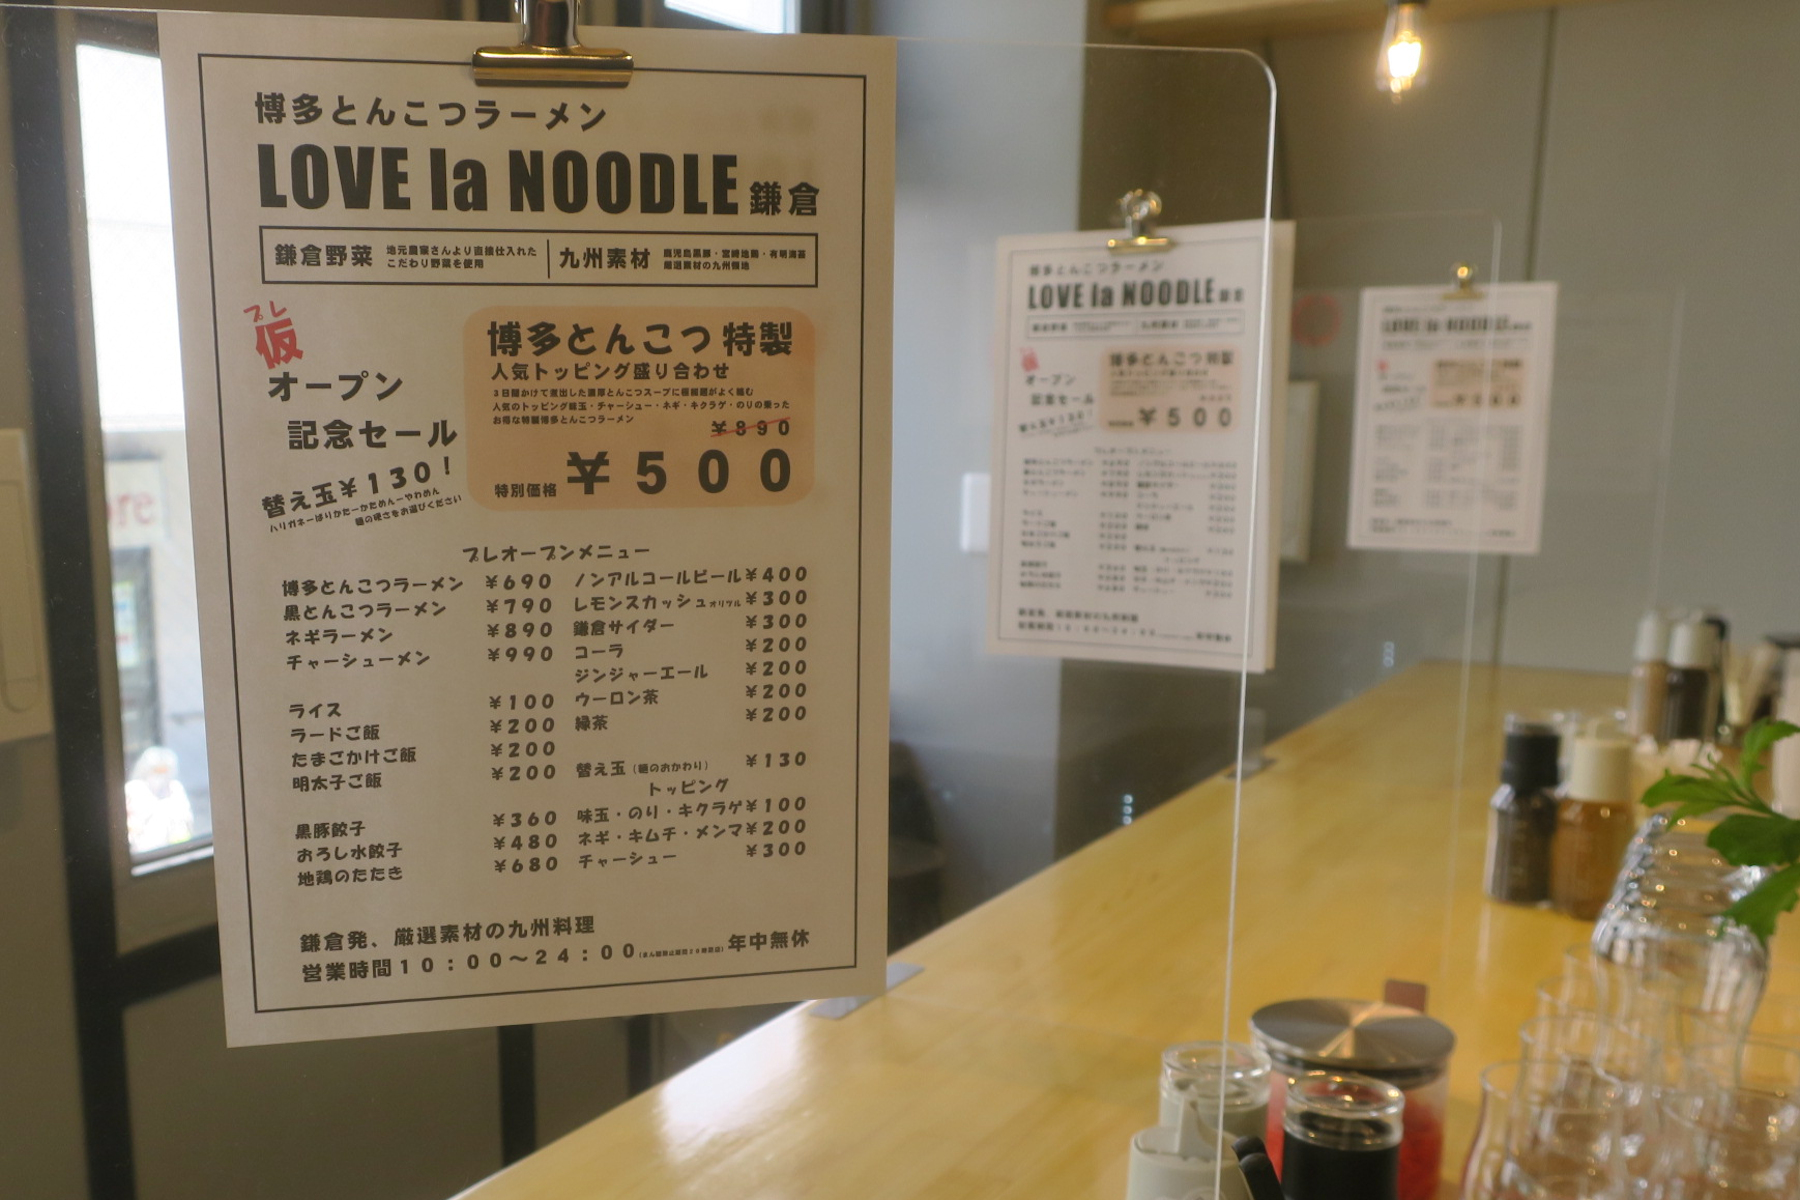 博多とんこつラーメン
LOVE la NOODLE 鎌倉
鎌倉野菜 地元農家さんより直接仕入れた
こだわり野菜を使用
九州素材 鹿児島黒豚・宮崎地鶏・有明海苔
厳選素材の九州
プレ
仮
オープン
記念セール
替え玉¥130!
ハリガネーばりかたーかためんーやわめん
麺の硬さをお選びください
博多とんこつ 特製
人気トッピング盛り合わせ
3日間かけて煮出した濃厚とんこつスープに極細麺がよく絡む
人気のトッピング味玉・チャーシュー・ネギ・キクラゲ・のりの乗った
お得な特製博多とんこつラーメン
¥890
特別価格 ¥500
プレオープンメニュー
博多とんこつラーメン ¥690
黒とんこつラーメン ¥790
ネギラーメン ¥890
チャーシューメン ¥990
ライス ¥100
ラードご飯 ¥200
たまごかけご飯 ¥200
明太子ご飯 ¥200
黒豚餃子 ¥360
おろし水餃子 ¥480
地鶏のたたき ¥680
ノンアルコールビール ¥400
レモンスカッシュオリジナル ¥300
鎌倉サイダー ¥300
コーラ ¥200
ジンジャーエール ¥200
ウーロン茶 ¥200
緑茶 ¥200
替え玉(麺のおかわり) ¥130
トッピング
味玉・のり・キクラゲ ¥100
ネギ・キムチ・メンマ ¥200
チャーシュー ¥300
鎌倉発、厳選素材の九州料理
営業時間10:00〜24:00 年中無休
博多とんこつラーメン
LOVE la NOODLE
オープン
記念セール
博多とんこつ 特製
¥500
LOVE la NOODLE